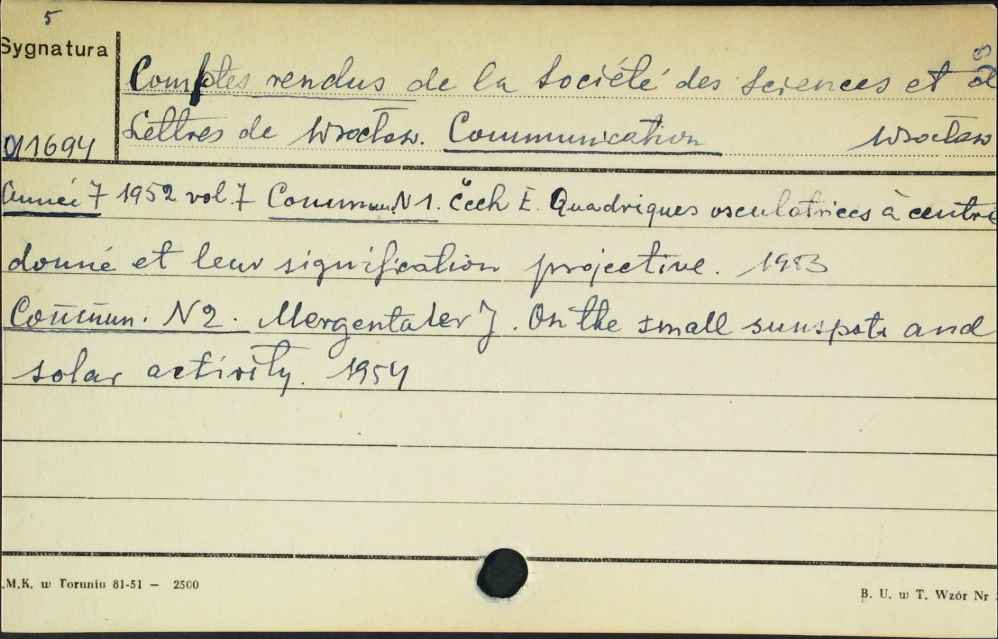 5
Sygnatura
Comptes rendus de la Société des Sciences et d
Lettres de Wrocław. Communication Wrocław
011694
Année 7 1952 vol. 7 Commun. N 1. Čech E. Quadriques osculatrices à centre
donné et leur signification projective. 1953
Commun. N 2. Mergentaler J. On the small sunspots and
solar activity. 1954
.M.K. w Toruniu 81-51 — 2500
B. U. w T. Wzór Nr